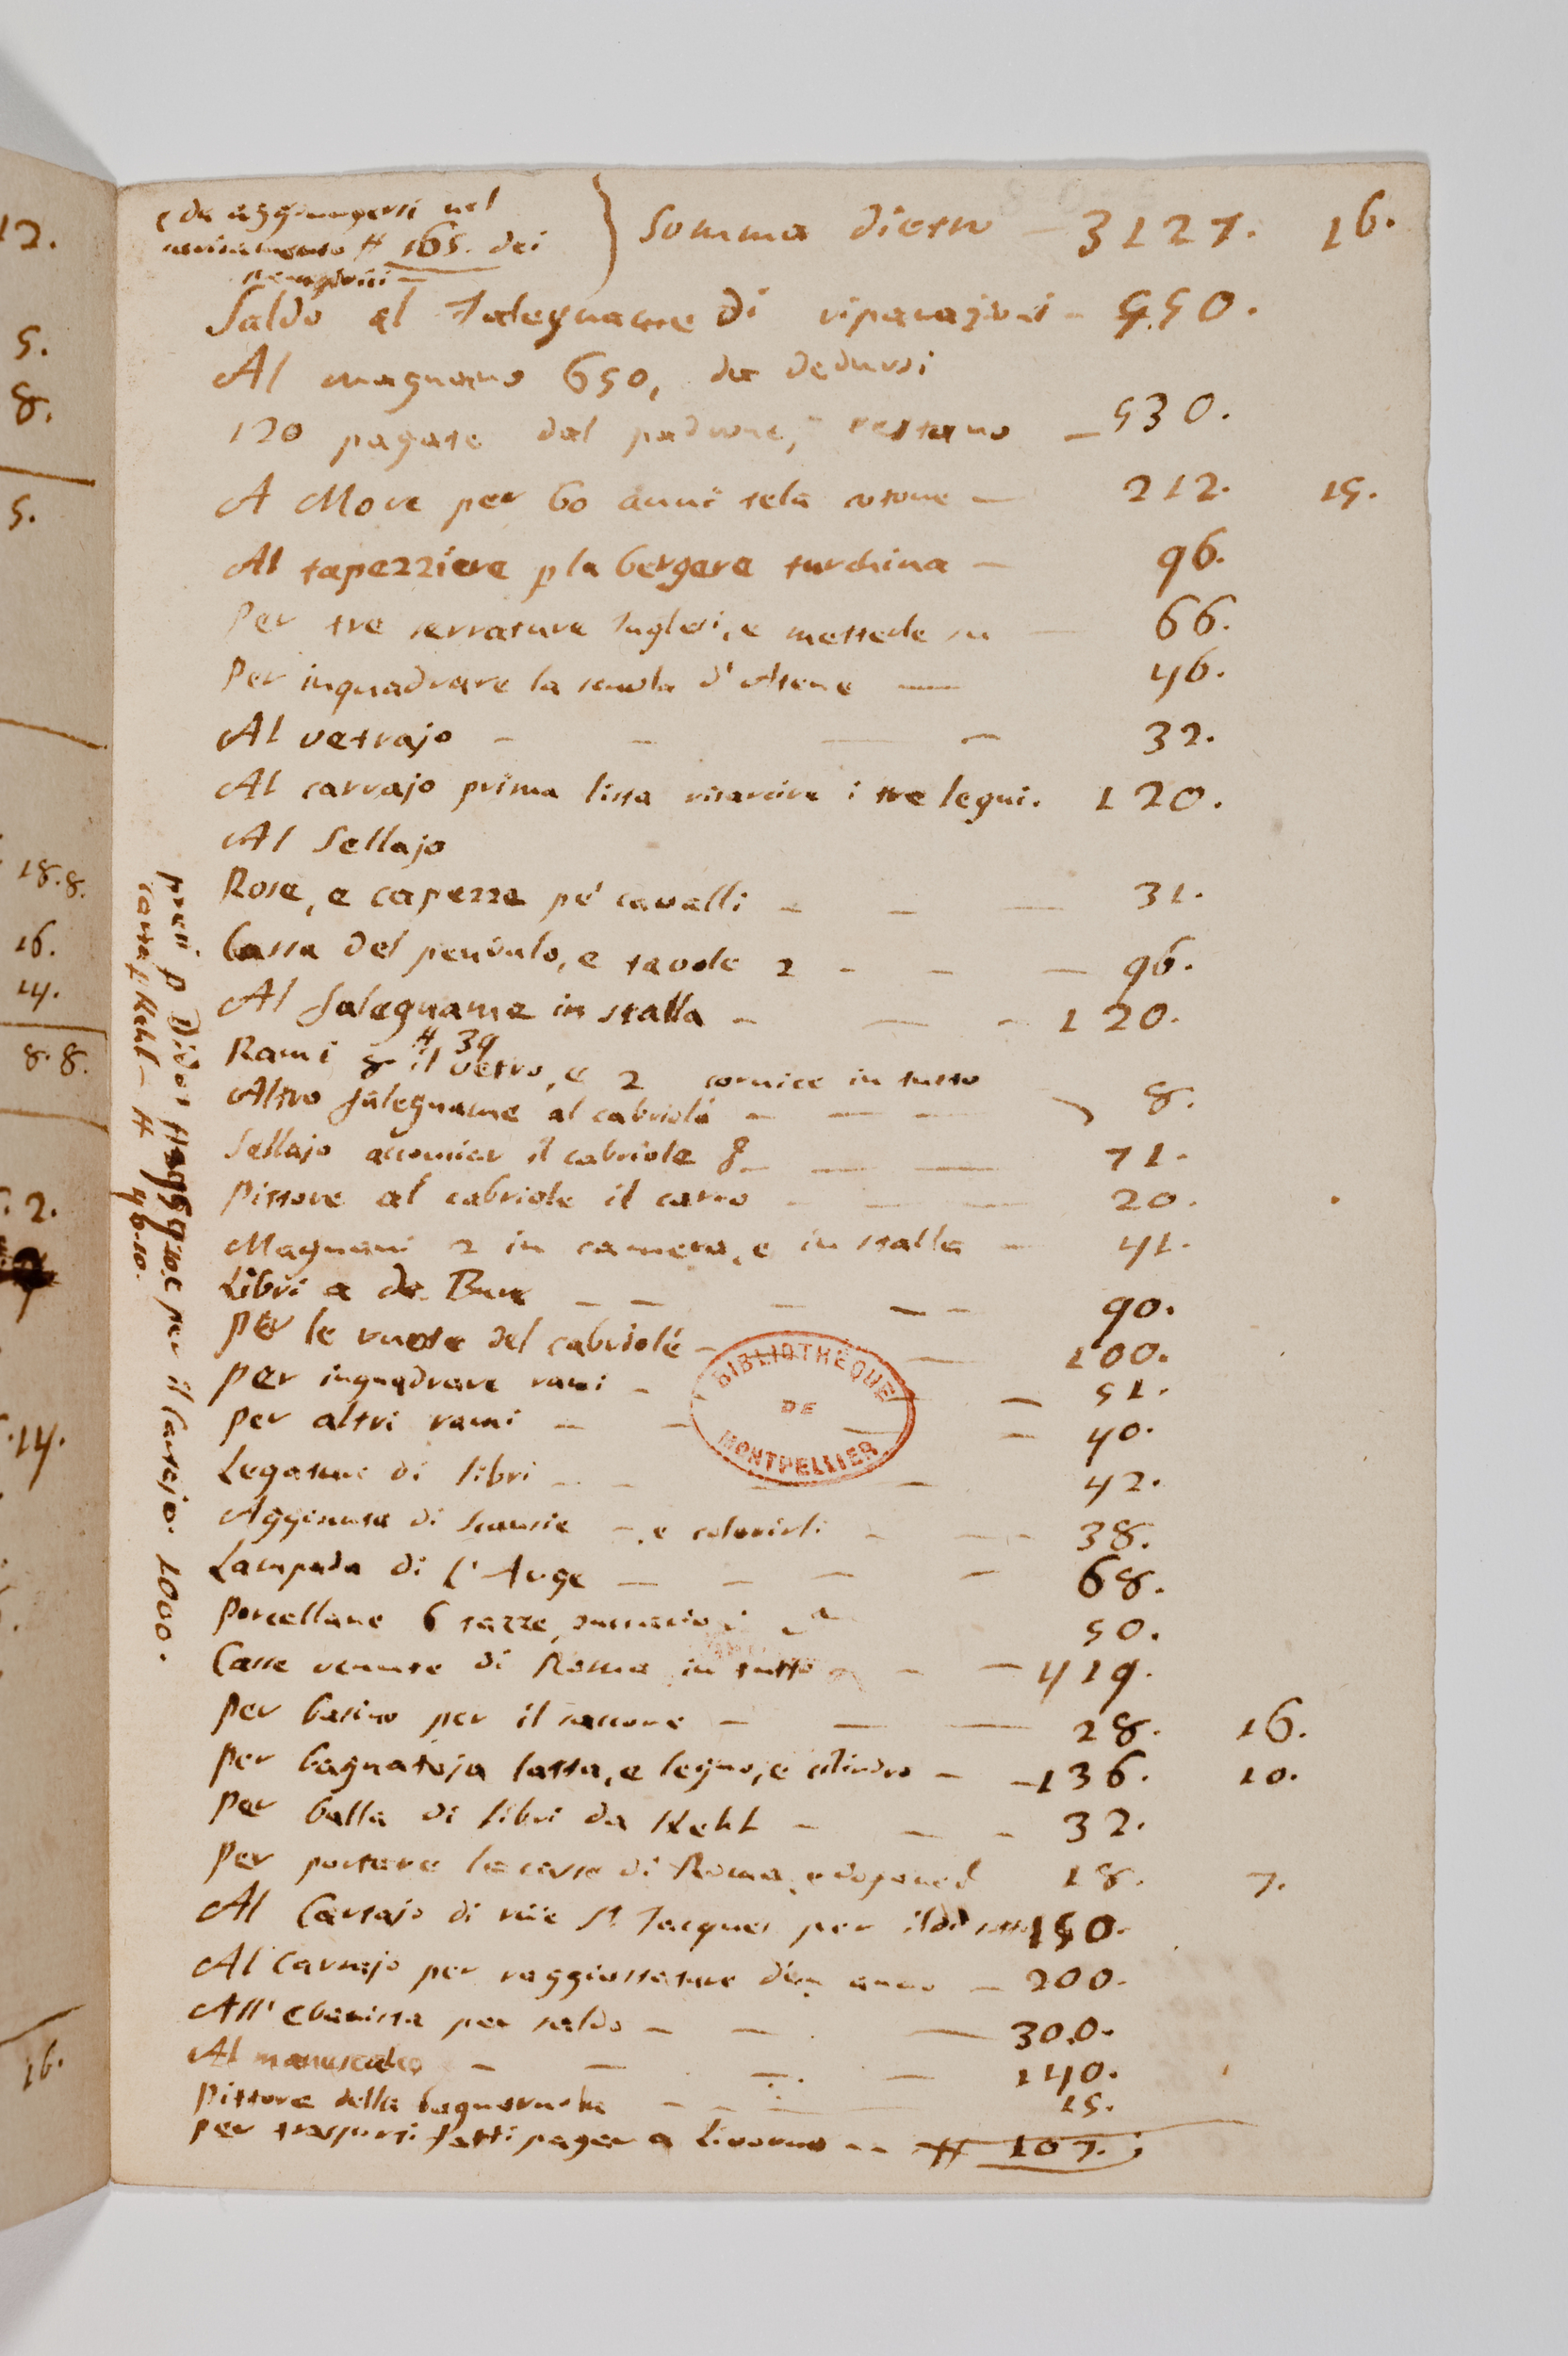 (da aggiungersi nel
₶ 165. dei
pennacchini
Somma dietro - 3127. 16.
Saldo al Falegname di riparazioni - 550.
Al magnano 650, da dedursi
120 pagate dal padrone, restano - 530.
A More per 60 auni tela cotone - 212. 15.
Al tapezziere p la bergere turchina - 96.
Per tre serrature Inglesi, e metterle su - 66.
Per inquadrare la scuola d'Atene - 46.
Al vetrajo - - - - 32.
Al carrajo prima lista risarcire i tre legni. 120.
Al Sellajo
Rose, e capezze pe' cavalli - - - 31.
Cassa del pendulo, e tavole 2 - - - 96.
Al falegname in stalla - - - 120.
₶ 39
Rami 8 il vetro, e 2 cornice in tutto
Altro falegname al cabriolé - - - 8.
Sellajo accomiar il cabriole - - - 71.
Pittore al cabriole il carro - - - 20.
Magnani 2 in camera, e in stalla - 41.
Libri a de Bure - - - - - 90.
Per le ruote del cabriolé - - 100.
Per inquadrare rami - - 51.
Per altri rami - - - - 40.
Legature di libri - - - - 42.
Aggiunta di scansie -, e colorirli - - - 38.
Lampada di l'Auge - - - - 68.
Porcellane 6 tazze, 50.
Casse venute di Roma in tutto - - - 419.
Per basino per il saccone - - - 28. 16.
Per bagnatoja latta, e legno, e cilindro - - 136. 10.
Per balla di libri da Kehl - - - 32.
Per portare le casse di Roma, e 18. 7.
Al Cartajo di rüe St. Jacques per 150.
Al Carrajo per raggiustature d'un anno - 200.
All' Ebanista per saldo - - - 300.
Al maniscalco - - - - 140.
Pittore della bagnaruola - - - 15.
Per trasporti fatti pagar a Livorno - - ₶ 107.
presi p Didot ₶ 10. e per il Cartajo. 1000.
carta p Kehl - ₶ 46-10.
12.
5.
8.
5.
18.8.
16.
14.
8.8.
2.
14.
16.
BIBLIOTHÈQUE
DE
MONTPELLIER